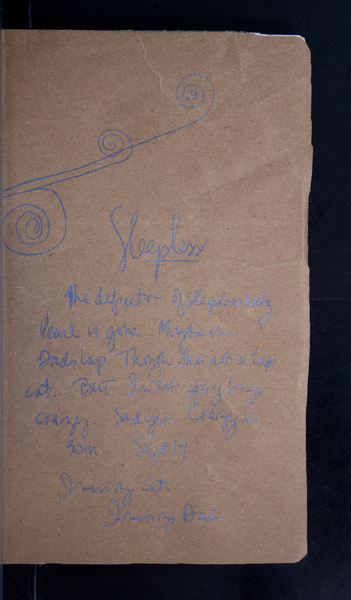 Sleepless
The definition of sleepless baby
Pearl is gone. Maybe in
Dad's lap. Though was not a lap
cat. But I'm not going
crazy. Sad yes. Crazy no.
3am. Sept 19
I miss my cat.
I miss my Dad.